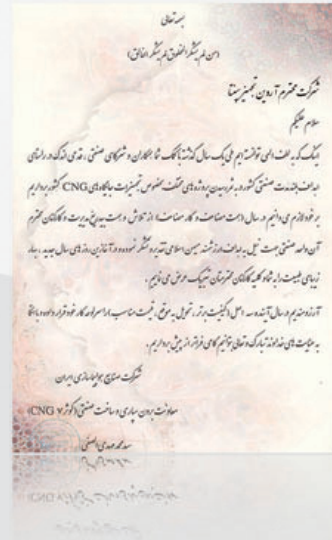 بسمه تعالی
(من لم یشکر المخلوق لم یشکر الخالق)
شرکت محترم آروین تجهیز سپنتا
سلام علیکم
اینک که به لطف الهی توانسته ایم طی یک سال گذشته با کمک شما همکاران و شرکای صنعتی، قدمی اندک در راستای
اهداف بلند مدت صنعتی کشور و به ثمر رسیدن پروژه های مختلف بخصوص تجهیزات جایگاه های CNG کشور برداریم
بر خود لازم می دانیم در سال (همت مضاعف و کار مضاعف) از تلاش و همت بی دریغ مدیریت و کارکنان محترم
آن واحد صنعتی جهت نیل به اهداف ارزشمند میهن اسلامی تقدیر و تشکر نموده و در آغازین روزهای سال جدید، بهار
زیبای طبیعت را به شما و کلیه کارکنان محترمتان تبریک عرض می نماییم.
آرزومندیم در سال آینده سه اصل (کیفیت برتر، تحویل به موقع، قیمت مناسب) را سرلوحه کار خود قرار داده و با اتکا
به عنایت های خداوند تبارک و تعالی بتوانیم گامی فراتر از پیش برداریم.
شرکت صنایع هواپیماسازی ایران
معاونت برون سپاری و ساخت صنعتی (کوثر ۷ CNG)
سید محمد مهدی